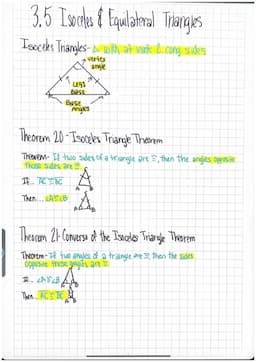 3.5 Isoceles & Equilateral Triangles
Isoceles Triangles- Δ with at least 2 cong sides
vertex
angle
Legs
Base
Base
Angles
Theorem 20 - Isosceles Triangle Theorem
Theorem- If two sides of a triangle are ≅, then the angles opposite
those sides are ≅.
If... AC ≅ BC
C
A B
Then... ∠A ≅ ∠B
C
A B
Theorem 21- Converse of the Isosceles Triangle Theorem
Theorem- If two angles of a triangle are ≅, then the sides
opposite those angles are ≅.
If... ∠A ≅ ∠B
A B
Then... AC ≅ BC
A B